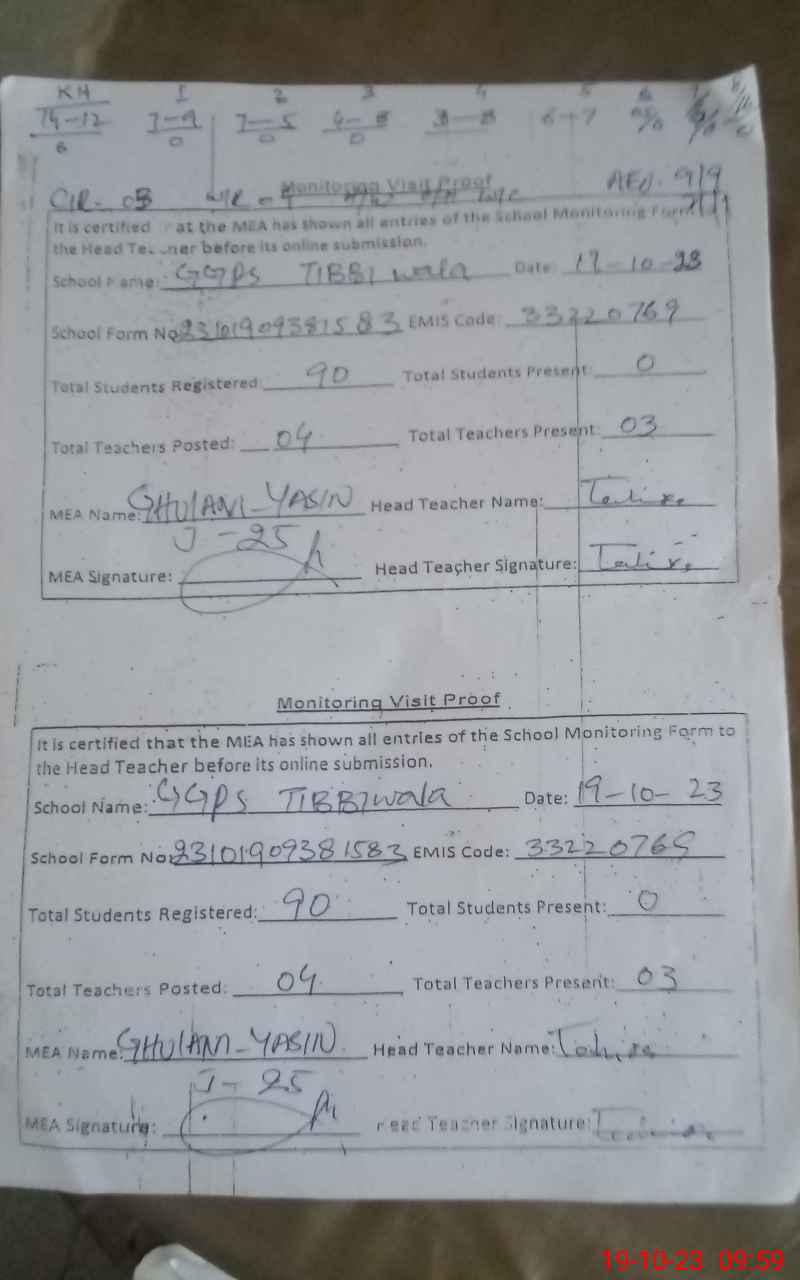 KH 1 2 3 4 5
74-12 7-9 7-5 6-7
6 0 0 0
CIR- 03 AEO. 9/9
Monitoring Visit Proof
It is certified at the MEA has shown all entries of the School Monitoring Form
the Head Teacher before its online submission.
School Name: GGPS TIBBI wala Date: 19-10-23
School Form No: 23101909381583 EMIS Code: 33220769
Total Students Registered: 90 Total Students Present: 0
Total Teachers Posted: 04 Total Teachers Present: 03
MEA Name: GHULAM-YASIN Head Teacher Name: Tahira
J-25
MEA Signature: Head Teacher Signature: Tahira
Monitoring Visit Proof
It is certified that the MEA has shown all entries of the School Monitoring Form to
the Head Teacher before its online submission.
School Name: GGPS TIBBI wala Date: 19-10-23
School Form No: 23101909381583 EMIS Code: 33220769
Total Students Registered: 90 Total Students Present: 0
Total Teachers Posted: 04 Total Teachers Present: 03
MEA Name: GHULAM-YASIN Head Teacher Name: Tahira
J-25
MEA Signature: Head Teacher Signature: Tahira
19-10-23 09:59